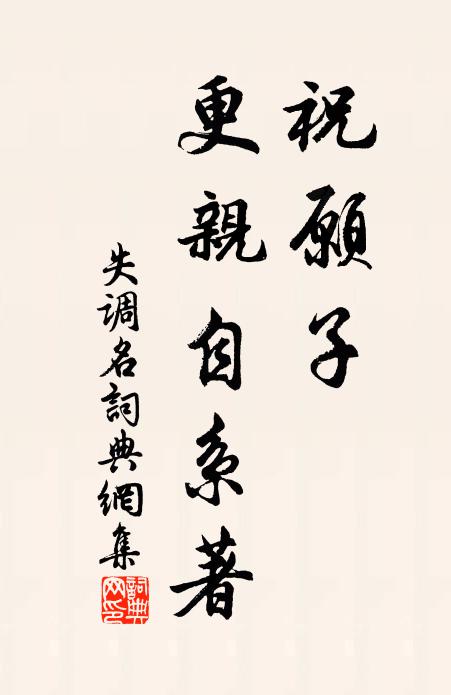 祝願子
更親自系著
失調名詞典網集
詞典網印